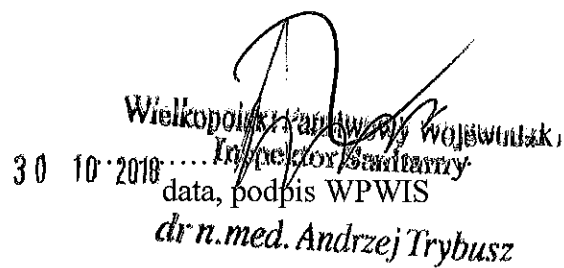 Wielkopolski Państwowy Wojewódzki
30 10 2018 ..... Inspektor Sanitarny
data, podpis WPWIS
dr n. med. Andrzej Trybusz